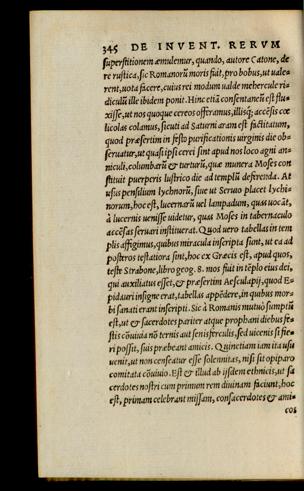 345 DE INVENT. RERVM
superstitionem æmulemur, quando, autore Catone, de
re rustica, sic Romanorũ moris fuit, pro bobus, ut uale-
rent, uota facere, cuius rei modum ualde mehercule ri-
diculũ ille ibidem ponit. Hinc etiã consentaneũ est flu-
xisse, ut nos quoque cereos offeramus, illisq; accẽsis cœ
licolas colamus, sicuti ad Saturni aram est factitatum,
quod præsertim in festo purificationis uirginis die ob-
seruatur, ut quasi ipsi cerei sint apud nos loco agni an-
niculi, columbarũ & turturũ, quæ munera Moses con
stituit puerperis lustrico die ad templũ deferenda. At
usus pensilium lychnorũ, siue ut Seruio placet lychi-
norum, hoc est, lucernarũ uel lampadum, quas uocãt,
à lucernis uenisse uidetur, quas Moses in tabernaculo
accẽsas seruari instituerat. Quod uero tabellas in tem
plis affigimus, quibus miracula inscripta sunt, ut ea ad
posteros testatiora sint, hoc ex Græcis est, apud quos,
teste Strabone, libro geog. 8. mos fuit in tẽplo eius dei,
qui auxiliatus esset, & præsertim Aesculapij, quod E-
pidauri insigne erat, tabellas appẽdere, in quibus mor-
bi sanati erant inscripti. Sic à Romanis mutuò sumptũ
est, ut & sacerdotes pariter atque prophani diebus fe-
stis cõuiuia nõ ternis aut senis ferculis, sed uicenis si fie-
ri possit, suis præbeant amicis. Quinetiam iam ita usu
uenit, ut non censeatur esse solennitas, nisi sit opiparo
comitata cõuiuio. Est & illud ab ijsdem ethnicis, ut sa
cerdotes nostri cum primum rem diuinam faciunt, hoc
est, primam celebrant missam, consacerdotes & ami-
cos